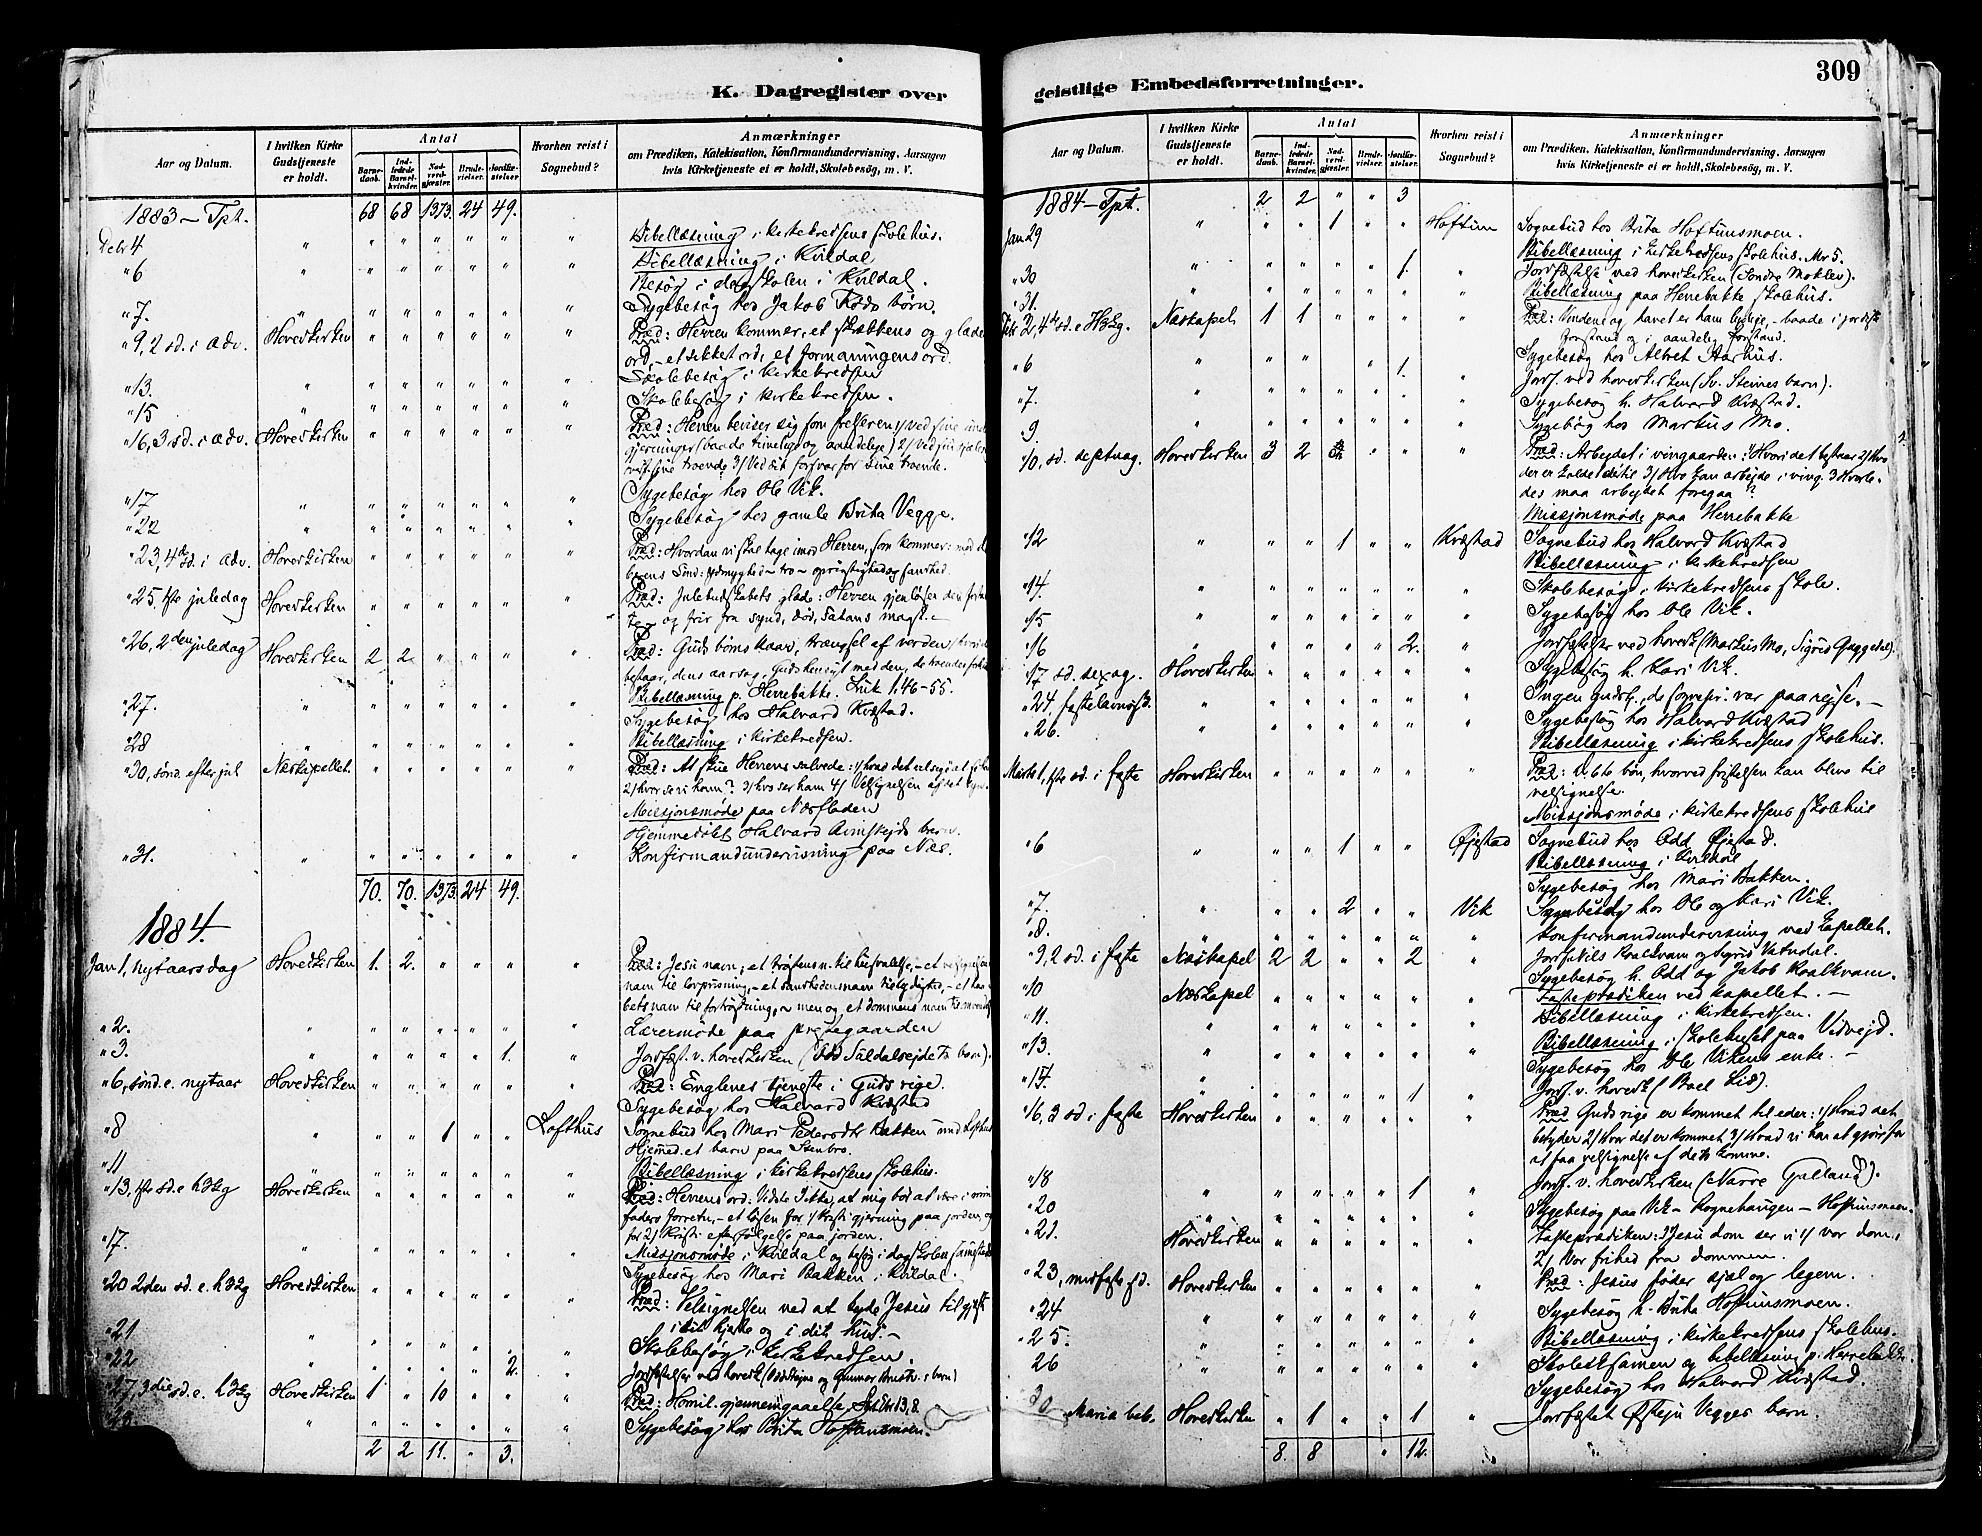 K. Dagregister over
Antal
Aar og Datum.
I hvilken Kirke Gudstjeneste er holdt.
Barnedaab.
Indledede Barselkvinder.
Nadverdgjæster.
Brudevielser.
Jordfæstelser.
Hvorhen reist i Sognebud?
Anmærkninger
om Prædiken, Katekisation, Konfirmandundervisning, Aarsagen
hvis Kirketjeneste ei er holdt, Skolebesøg, m. V.
1883 – Tpt. " 68 68 1373. 24 49. "
Decbr 4 " " " " " " " Bibellæsning i kirkekredsens skolehus.
" 6 " " " " " " Bibellæsning i Kvildal
Besøg i dagskolen i Kvildal.
" 7. " " " " " " " Sygebesøg hos Jakob børn.
" 9, 2 sd. i adv. Hovedkirken " " " " " " Præd: Herren kommer, et skrækkens og glædes
ord, – et sikkert ord, et formaningens ord.
" 13. " " " " " " " Skolebesøg i kirkekredsen
" 15 " " " " " " " Skolebesøg i kirkekredsen.
" 16, 3 sd. i adv. Hovedkirken " " " " " " Præd: Herren beviser sig som frelseren 1/ ved sine
gjerninger (baade timelige og aandelige) 2/ Ved sin
sine troende 3/ Ved sit forsvar for sine troende.
" 17 " " " " " " " Sygebesøg hos Ole Vik.
" 22 " " " " " " " Sygebesøg hos gamle Brita Vegge.
" 23, 4de sd. i adv. Hovedkirken " " " " " " Præd: Hvordan vi skal tage imod Herren, som kommer: med
Sind: ydmyghed – tro – oprigtighed og sandhed.
" 25. 1ste juledag Hovedkirken " " " " " " Præd: Julebudskabets glæde: Herren gjenløser
og frir fra synd, død, Satans magt. –
" 26, 2den juledag Hovedkirken 2 2. " " " " Præd: Guds børns kaar, trængsel af verden,
bestaar, dens aarsag, Guds hensigt med den, de troendes
" 27. " " " " " " " Bibellæsning p. Herrebakke. Luk 1. 46–55.
Sygebesøg hos Halvard Kvæstad.
" 28 " " " " " " " Bibellæsning i kirkekredsen.
" 30, sønd. efter jul Næskapellet. " " " " " " Præd: At skue Herrens salvede: 1/ hvad det vil sige at
2/ hvor se vi ham? 3/ hvo ser ham 4/ Velsignelsen af det
Missjonsmøde paa Næsfladen
Hjemmedøbt Halvard barn.
" 31. " " " " " " " Konfirmandundervisning paa Næs.
70. 70. 1373. 24 49.
1884.
Jan 1, nytaarsdag Hovedkirken 1. 2. Præd: Jesu navn; et frelsens n. til
navn til lovprisning, – et sandhedens navn til lydighed, –
bets navn til fortrøstning, men og et dommens navn
" 2. " " " " " " " Lærermøde paa præstegaarden
" 3. " " " " " 1. " Jordfæst. v. hovedkirken (Odd Suldalseidets barn).
" 6, sønd. e. nytaar Hovedkirken " " " " " " Præd: Englenes tjeneste i Guds rige.
Sygebesøg hos Halvard Kvæstad
" 8 " " " 1 " " Lofthus Sognebud hos Mari Pedersdtr Bakken
Hjemmed. et barn paa Stenbro.
" 11 " " " " " " " Bibellæsning i kirkekredsens skolehus.
" 13, 1ste sd. e h3kg Hovedkirken " " " " " " Præd: Herrens ord: Vidste I ikke, at mig bør at være i min
faders forretn., – et løsen for 1/ Kristi gjerning paa jorden, og
for 2/ Kristi efterfølgelse paa jorden.
" 17. " " " " " " " Missjonsmøde i Kvildal og besøg i dagskolen
Sygebesøg hos Mari Bakken i Kvildal.
" 20 2den sd. e. h3kg Hovedkirken " " " " " " Præd: Velsignelsen ved at byde Jesus til gjæst
i dit hjerte og i dit hus. –
" 21 " " " " " " Skolebesøg i kirkekredsen.
" 22 " " " " " 2. " Jordfæstelser ved hovedk.
" 27, 3die sd. e. h3kg Hovedkirken 1 " 10 " " " Præd: Homil. gjennemgaaelse 13, 8.
" " " " " " Sygebesøg hos Brita Hoftunsmoen.
2 2 11. " 3.
geistlige Embedsforretninger.
309
Antal
Aar og Datum.
I hvilken Kirke Gudstjeneste er holdt.
Barnedaab.
Indledede Barselkvinder.
Nadverdgjæster.
Brudevielser.
Jordfæstelser.
Hvorhen reist i Sognebud?
Anmærkninger
om Prædiken, Katekisation, Konfirmandundervisning, Aarsagen
hvis Kirketjeneste ei er holdt, Skolebesøg, m. V.
1884 – Tpt. 2 2 " " 3
Jan 29 " " " 1 " " Hoftun Sognebud hos Brita Hoftunsmoen.
Bibellæsning i kirkekredsens skolehus. Mr 5.
" 30 " " " " " 1. " Jordfæstelse ved hovedkirken (Søndre Moklev).
" 31. " " " " " " Bibellæsning paa Herrebakke skolehus.
Febr 3, 4de sd. e. H3kg. Næskapel 1 1 " " " " Præd: Vindene og havet er ham lydige, – baade i jordisk
forstand og i aandelig forstand.
" 6 " " " " 1. " Sygebesøg hos Albret Aarhus.
Jordf. ved hovedkirken (Sv. Steines barn).
" 7. " " " " " " Sygebesøg h. Halvard Kvæstad.
" 9. " " " " " " Sygebøg hos Markus Mo.
" 10, sd. septuag. Hovedkirken 3 2 " " " Præd: Arbejdet i vingaarden: 1/ Hvori det bestaar 2/ Hvo
der er kaldet dertil 3/ Hvo kan arbejde i ving. 3 Hvorle-
des maa arbejdet foregaa?
Missjonsmøde paa Herrebakke
" 12 " " " 1 " " Kvæstad Sognebud hos Halvard Kvæstad
Bibellæsning i kirkekredsen
" 14. " " " " " Skolebesøg i kirkekredsens skole.
" 15 " " " " " Sygebesøg hos Ole Vik.
" 16 " " " " 2. " Jordfæstelser ved hovedk (Markus Mo, Sigrid Guggedal).
" 17 sd. sexag. Hovedkirken " " " " " " Sygebesøg h. Kari Vik.
" 24. fastelavnssd. " " " " " " " Ingen gudstj., da sognepr. var paa rejse. –
" 26. " " " " " " Sygebesøg hos Halvard Kvæstad
Bibellæsning i kirkekredsens skolehus.
Marts 1, 1ste sd. i faste Hovedkirken " " " " " " Præd: bøn, hvorved fristelsen kan blive til
velsignelse.
Missjonsmøde i kirkekredsens skolehus
" 6 " " " 1 " " Øjestad Sognebud hos Odd Øjestad.
Bibellæsning i Kvildal
Sygebesøg hos Mari Bakken.
" 7. " " " 2 " " Vik Sognebud hos Ole og Kari Vik.
" 8. " " " " " " Konfirmandundervisning ved kapellet.
" 9, 2 sd. i faste Næskapel 2 2 " " 2 " Jordf. Nils Roalkvam og Sigrid Vatndal.
Sygebesøg h. Odd og Jakob Roalkvam.
" 10 Næskapel " " " " " " Fasteprædiken ved kapellet. –
" 11. " " " " " " " Bibellæsning i kirkekredsen.
" 13. " " " " " " " Bibellæsning i skolehuset paa Vidvejd.
Sygebesøg hos Ole Vikens enke. –
" 15. " " " " " 1 " Jordf. v. hovedk (Boel Lie).
" 16, 3 sd. i faste Hovedkirken " " " " " " Præd Guds rige er kommet til eder: 1/ Hvad det
betyder 2/ Hvor det er kommet 3/ Hvad vi har at gjøre for
at faa velsignelse af dets komme.
" 18 " " " " " 1 " Jordf. v. hovedkirken
" 20 " " " " " " " Sygebesøg paa Vik – Rognehaugen – Hoftunsmoen.
" 21. Hovedkirken " " " " " " Fasteprædiken: I Jesu dom ser vi 1/ vor dom,
2/ Vor frihed fra dommen.
" 23, midfaste sd. Hovedkirken " " " " " " Præd: Jesus føder sjæl og legem.
" 24 " " " " " " " Sygebesøg h. Brita Hoftunsmoen.
" 25. " " " " " " " Bibellæsning i kirkekredsens skolehus.
26 " " " " " " " Skoleeksamen og bibellæsning p. Herrebakke.
Sygebesøg hos Halvard Kvæstad.
30 Maria beb. Hovedkirken " 1 " " 1 " Jordfæstet Østeju Vegges barn.
8. 8 " 12. "